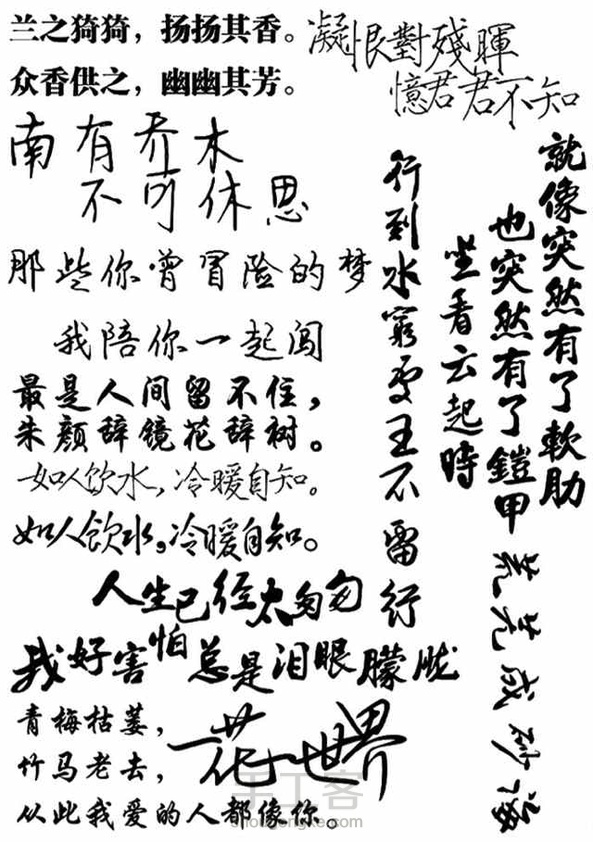 兰之猗猗，扬扬其香。
众香供之，幽幽其芳。
凝恨對殘暉
憶君君不知
南有乔木
不可休思
那些你曾冒险的梦
我陪你一起闯
最是人间留不住，
朱颜辞镜花辞树。
如人饮水，冷暖自知。
如人饮水，冷暖自知。
人生已经太匆匆
我好害怕总是泪眼朦胧
青梅枯萎，
竹马老去，
从此我爱的人都像你。
一花一世界
就像突然有了軟肋
也突然有了鎧甲
行到水窮处
坐看云起時
王不留行
手工客
shougongke.com